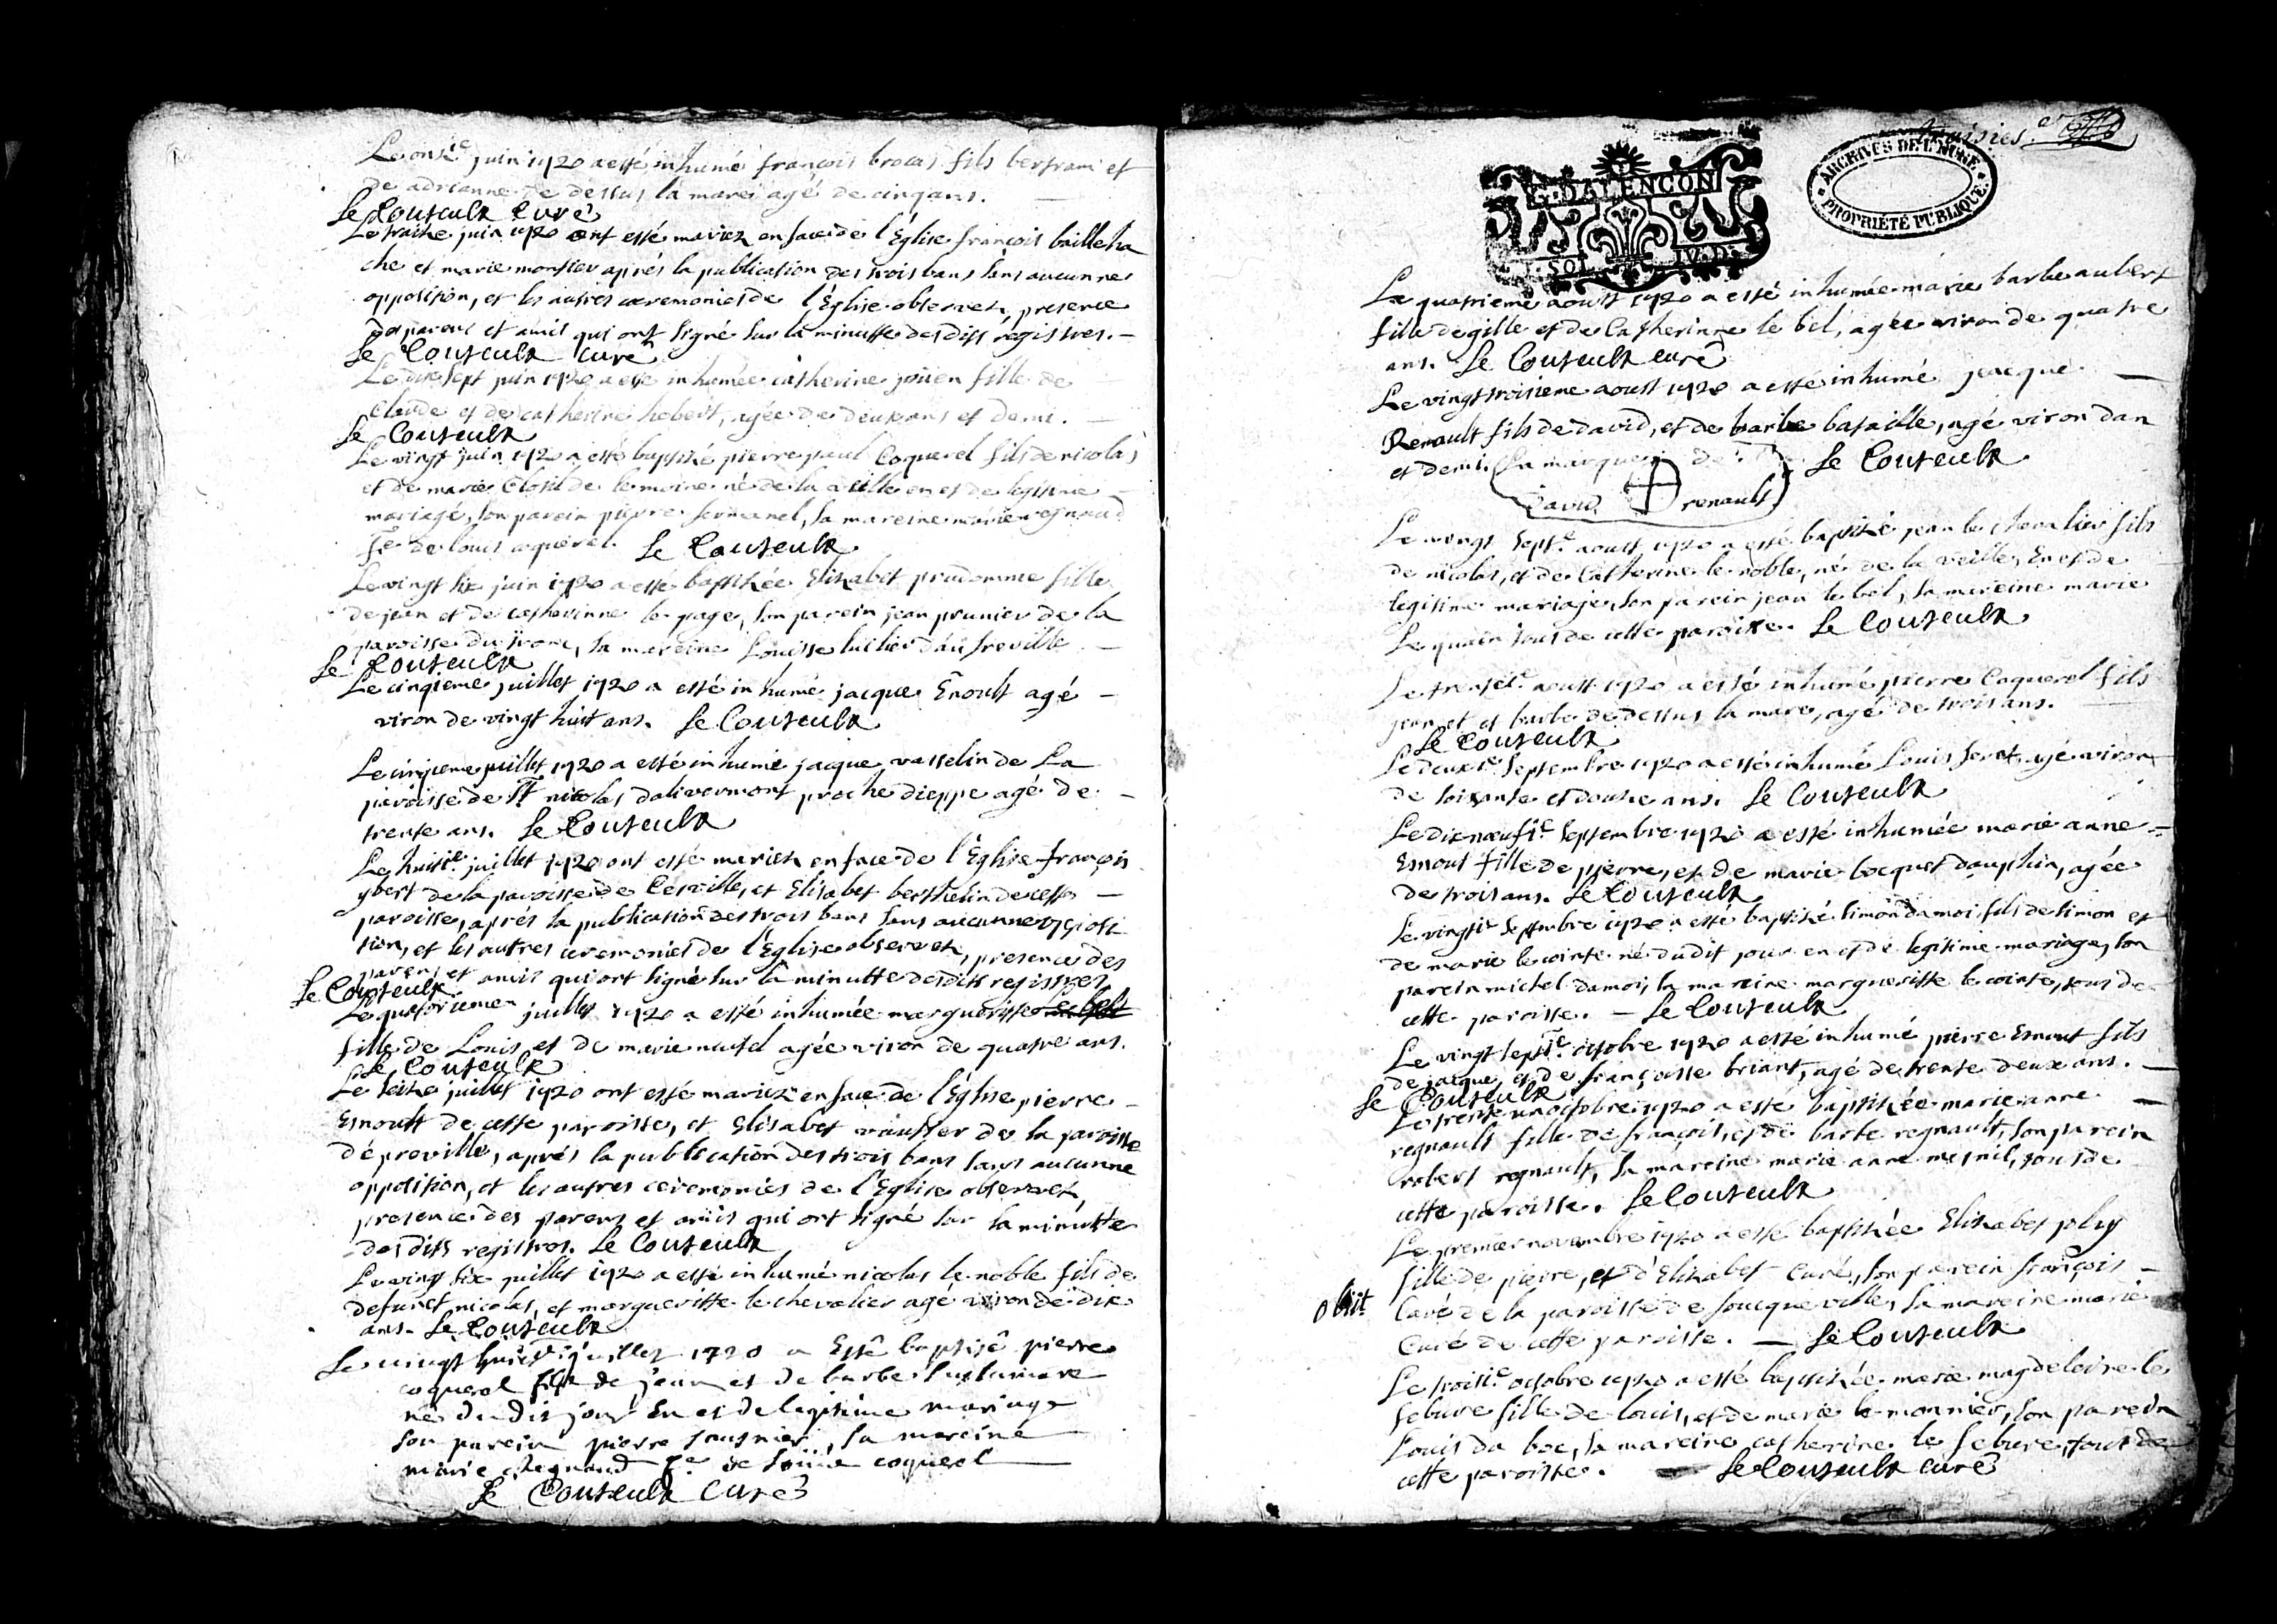 Le onsie. juin 1720 a esté inhumé françois brocas fils bertram et
de adrianne de dessus la mare agé de cinq ans.
Le Couteulx Curé
Le traise juin 1720 ont esté mariez en face de l'Eglise françois bailleha
che et marie monstier aprés la publication des trois bans sans aucunne
opposition, et les autres ceremonies de l'Eglise observez, presence
des parens et amis qui ont signé sur la minutte desdits registres. -
Le Couteulx curé
Le dix sept juin 1720 a esté inhumée catherine jouen fille de
Claude et de catherine hebert, agée de deux ans et demi.
Le Couteulx
Le vingt juin 1720 a esté baptisé pierre paul Coquerel fils de nicolas
et de marie Clotilde lemoine né de la veille en et de legitime
mariage, son parein pierre, sa mareine marie regnaud
fe. de louis coquerel. Le Couteulx
Le vingt six juin 1720 a esté baptisée Elizabet prudomme fille
de jean et de catherinne le page, son parein jean prunier de la
paroisse du trone, sa mareine Louisse luilier d'autreville
Le Couteulx
Le cinqieme juillet 1720 a esté inhumé jacque Enoult agé -
viron de vingt huit ans. Le Couteulx
Le cinqieme juillet 1720 a esté inhumé jacque vasselin de La
paroisse de St nicolas daliermont proche dieppe agé de -
trente ans. Le Couteulx
Le huitie. juillet 1720 ont esté mariez en face de l'Eglise françois
ybert de la paroisse de Cesville, et Elisabet berthelin de cette -
paroisse, aprés la publication des trois bans sans aucunne oposi
tion, et les autres ceremonies de l'Eglise observez, presence des
parens et amis qui ont signé sur la minutte desdits registres
Le Couteulx
Le quatorzieme juillet 1720 a esté inhumée margueritte
fille de Louis et de marie nutel agée viron de quatre ans.
Le Couteulx
Le seize juillet 1720 ont esté mariez en face de l'Eglise pierre -
Esnoult de cette paroisse, et Elisabet vautier de la paroisse
d'épreville, aprés la publication des trois bans sans aucunne
opposition, et les autres ceremonies de l'Eglise observez,
presence des parens et amis qui ont signé sur la minutte
desdits registres. Le Couteulx
Le vingt six juillet 1720 a esté inhumé nicolas le noble fils de
defunct nicolas, et margueritte le chevalier agé viron de dix
ans. Le Couteulx
Le vingt huitie. juillet 1720 a Esté baptisé pierre
coquerel fils de jean et de barbe
né du dit jour En et de legitime mariage
son parein pierre, sa mareine
marie Regnaud fe. de coquerel
Le Couteulx Curé
troisies.
G. D'ALENCON
SOL IV.D.
ARCHIVES DE L'EURE
PROPRIÉTÉ PUBLIQUE
Le quatrieme aoust 1720 a esté inhumée marie barbe aubert
fille de gille et de Catherinne le bel, agée viron de quatre
ans. Le Couteulx curé
Le vingt troisieme aoust 1720 a esté inhumé jacque -
Renault fils de david, et de barbe bataille, agé viron dan
et demi. La marque de Le Couteulx
David renault
Le vingt septe. aoust 1720 a esté baptisé jean le chevalier fils
de nicolas, et de Catherine le noble, né de la veille, En et de
legitime mariage, son parein jean le bel, sa mareine marie
Le quain tous de cette paroisse. Le Couteulx
Le trentie. aoust 1720 a esté inhumé pierre Coquerel fils
jean et et barbe de dessus la mare, agé de trois ans.
Le Couteulx
Le deuxie. Septembre 1720 a esté inhumé Louis agé viron
de soixante et douze ans. Le Couteulx
Le dix noeufie. Septembre 1720 a esté inhumée marie anne
Esnout fille de pierre, et de marie bocquet dauphin, agée
de trois ans. Le Couteulx
Le vingtie. Septembre 1720 a esté baptisé simon damoi fils de simon et
de marie le cointe né dudit jour en et de legitime mariage, son
parein michel damoi, sa mareine margueritte le cointe, tous de
cette paroisse. - Le Couteulx
Le vingt septie. octobre 1720 a esté inhumé pierre Esnout fils
de jacque et de françoisse briant, agé de trente deux ans. -
Le Couteulx
Le trente un octobre 1720 a esté baptisée marie anne -
regnault fille de françois, et de barbe regnault, son parein
robert regnault, sa mareine marie anne mesnil, tous de
cette paroisse. Le Couteulx
Le premier novembre 1720 a esté baptisée Elizabet
fille de pierre, et d'Elizabet Curé, son parein françois -
obiit Caré de la paroisse de foucqueville, sa mareine marie
Curé de cette paroisse. - Le Couteulx
Le troisie. octobre 1720 a esté baptisée marie magdeleine le
febure fille de louis, et de marie le monnier, son parein
Louis du boc, sa mareine catherine le febure, tous de
cette paroisse. - Le Couteulx curé